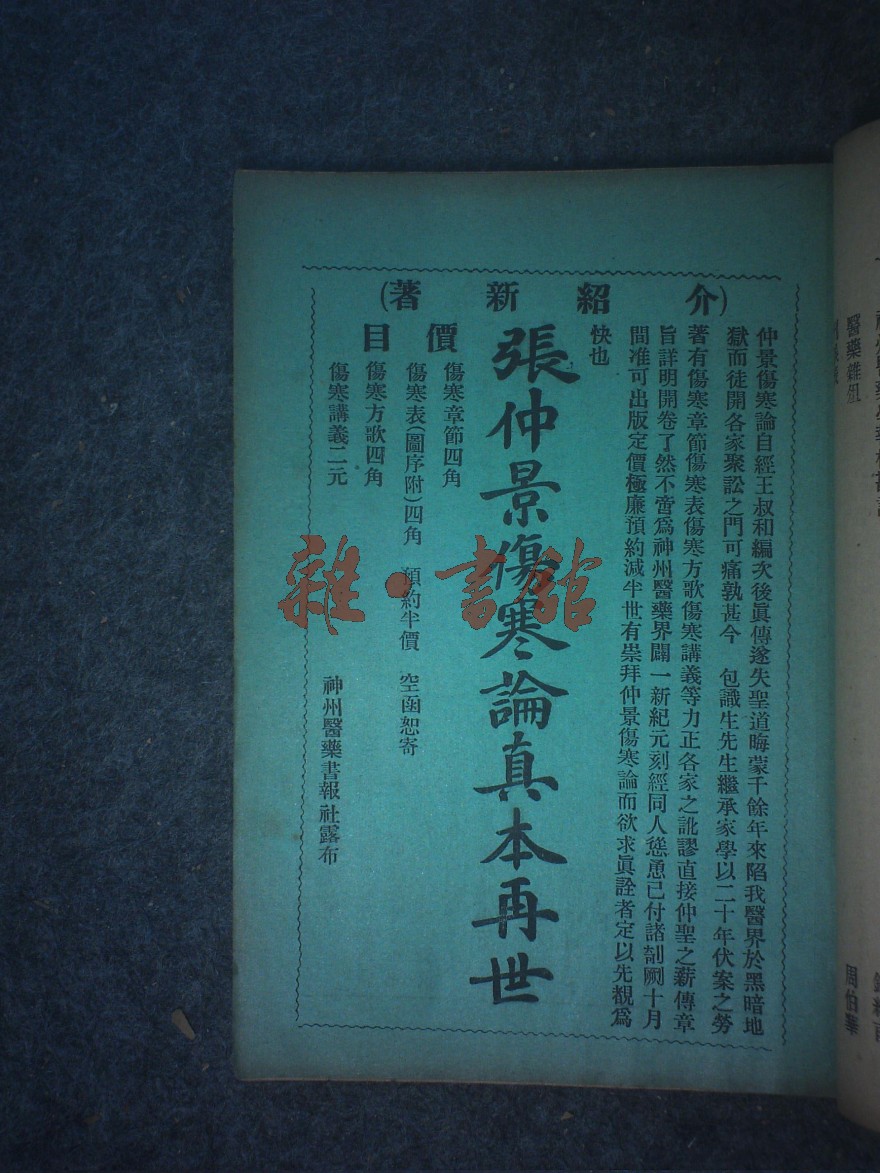 (介紹新著)
仲景傷寒論自經王叔和編次後眞傳遂失聖道晦蒙千餘年來陷我醫界於黑暗地
獄而徒開各家聚訟之門可痛孰甚今 包識生先生繼承家學以二十年伏案之勞
著有傷寒章節傷寒表傷寒方歌傷寒講義等力正各家之訛謬直接仲聖之薪傳章
旨詳明開卷了然不啻爲神州醫藥界闢一新紀元刻經同人慫恿已付諸剞劂十月
間准可出版定價極廉預約減半世有崇拜仲景傷寒論而欲求眞詮者定以先覩爲
快也
張仲景傷寒論真本再世
價目
傷寒章節四角
傷寒表(圖序附)四角 預約半價 空函恕寄
傷寒方歌四角
傷寒講義二元
神州醫藥書報社露布
雜·書館
醫藥雜俎
周伯華